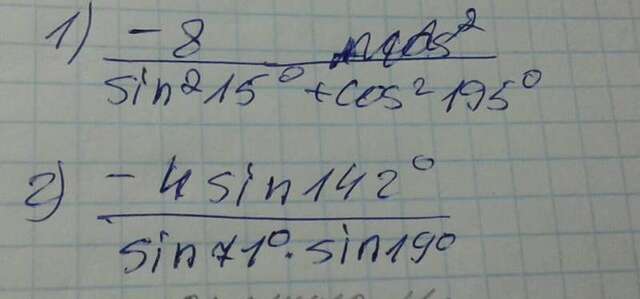 1) -8
sin²15° + cos²195°
2) -4 sin142°
sin71° · sin19°